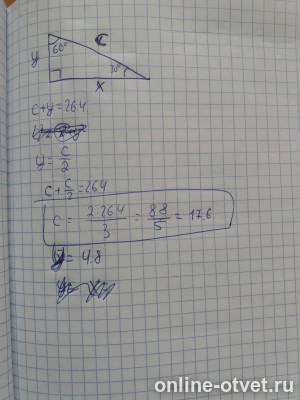 c
y
60°
30°
x
c+y=26.4
y = c/2
c + c/2 = 26.4
c = 2·26.4/3 = 88/5 = 17.6
= 4.8
online-otvet.ru